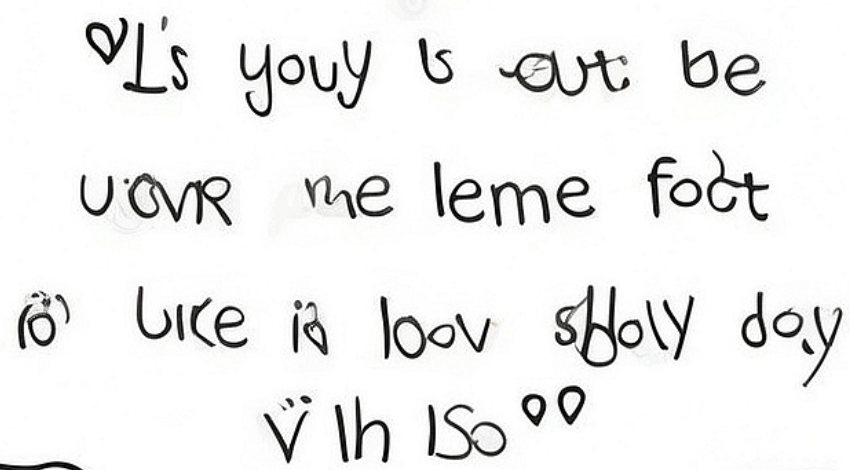 L's youy is out be
uovr me leme foct
like is loov sboly day
V Ih ISo